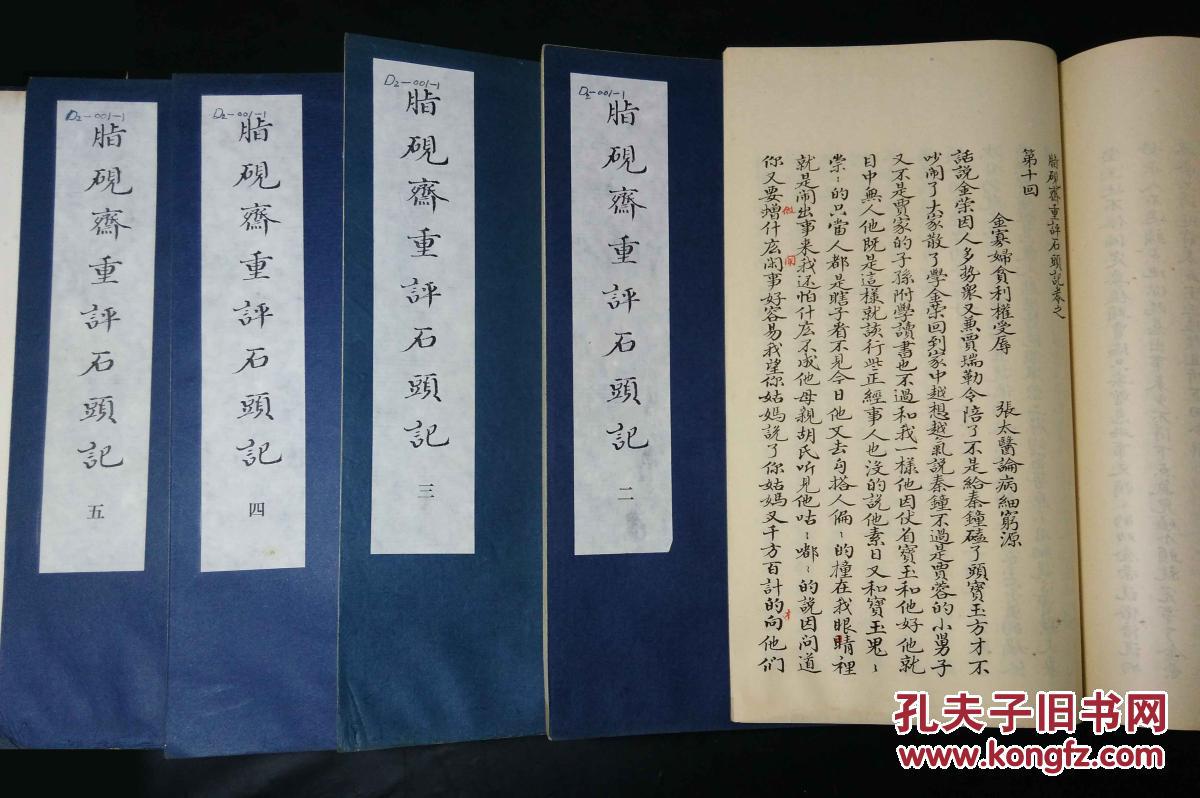 脂硯齋重評石頭記卷之
第十回
金寡婦貪利權受辱　張太醫論病細窮源
話說金榮因人多勢衆又兼賈瑞勒令陪了不是給秦鐘磕了頭寶玉方才不
吵闹了大家散了學金榮回到家中越想越氣說秦鐘不過是賈蓉的小舅子
又不是賈家的子孫附學讀書也不過和我一樣他因仗着寶玉和他好他就
目中無人他既是這樣就該行些正經事人也沒的說他素日又和寶玉鬼〻
祟〻的只當人都是瞎子看不見今日他又去勾搭人偏〻的撞在我眼睛裡
就是闹出事来我还怕什庅不成他母親胡氏听見他咕〻嘟〻的說因问道
你又要增什庅闲事好容易我望你姑媽說了你姑媽又千方百計的向他们
做
闹
才
D2-001-1
脂硯齋重評石頭記
二
D2-001-1
脂硯齋重評石頭記
三
D2-001-1
脂硯齋重評石頭記
四
D2-001-1
脂硯齋重評石頭記
五
孔夫子旧书网
www.kongfz.com